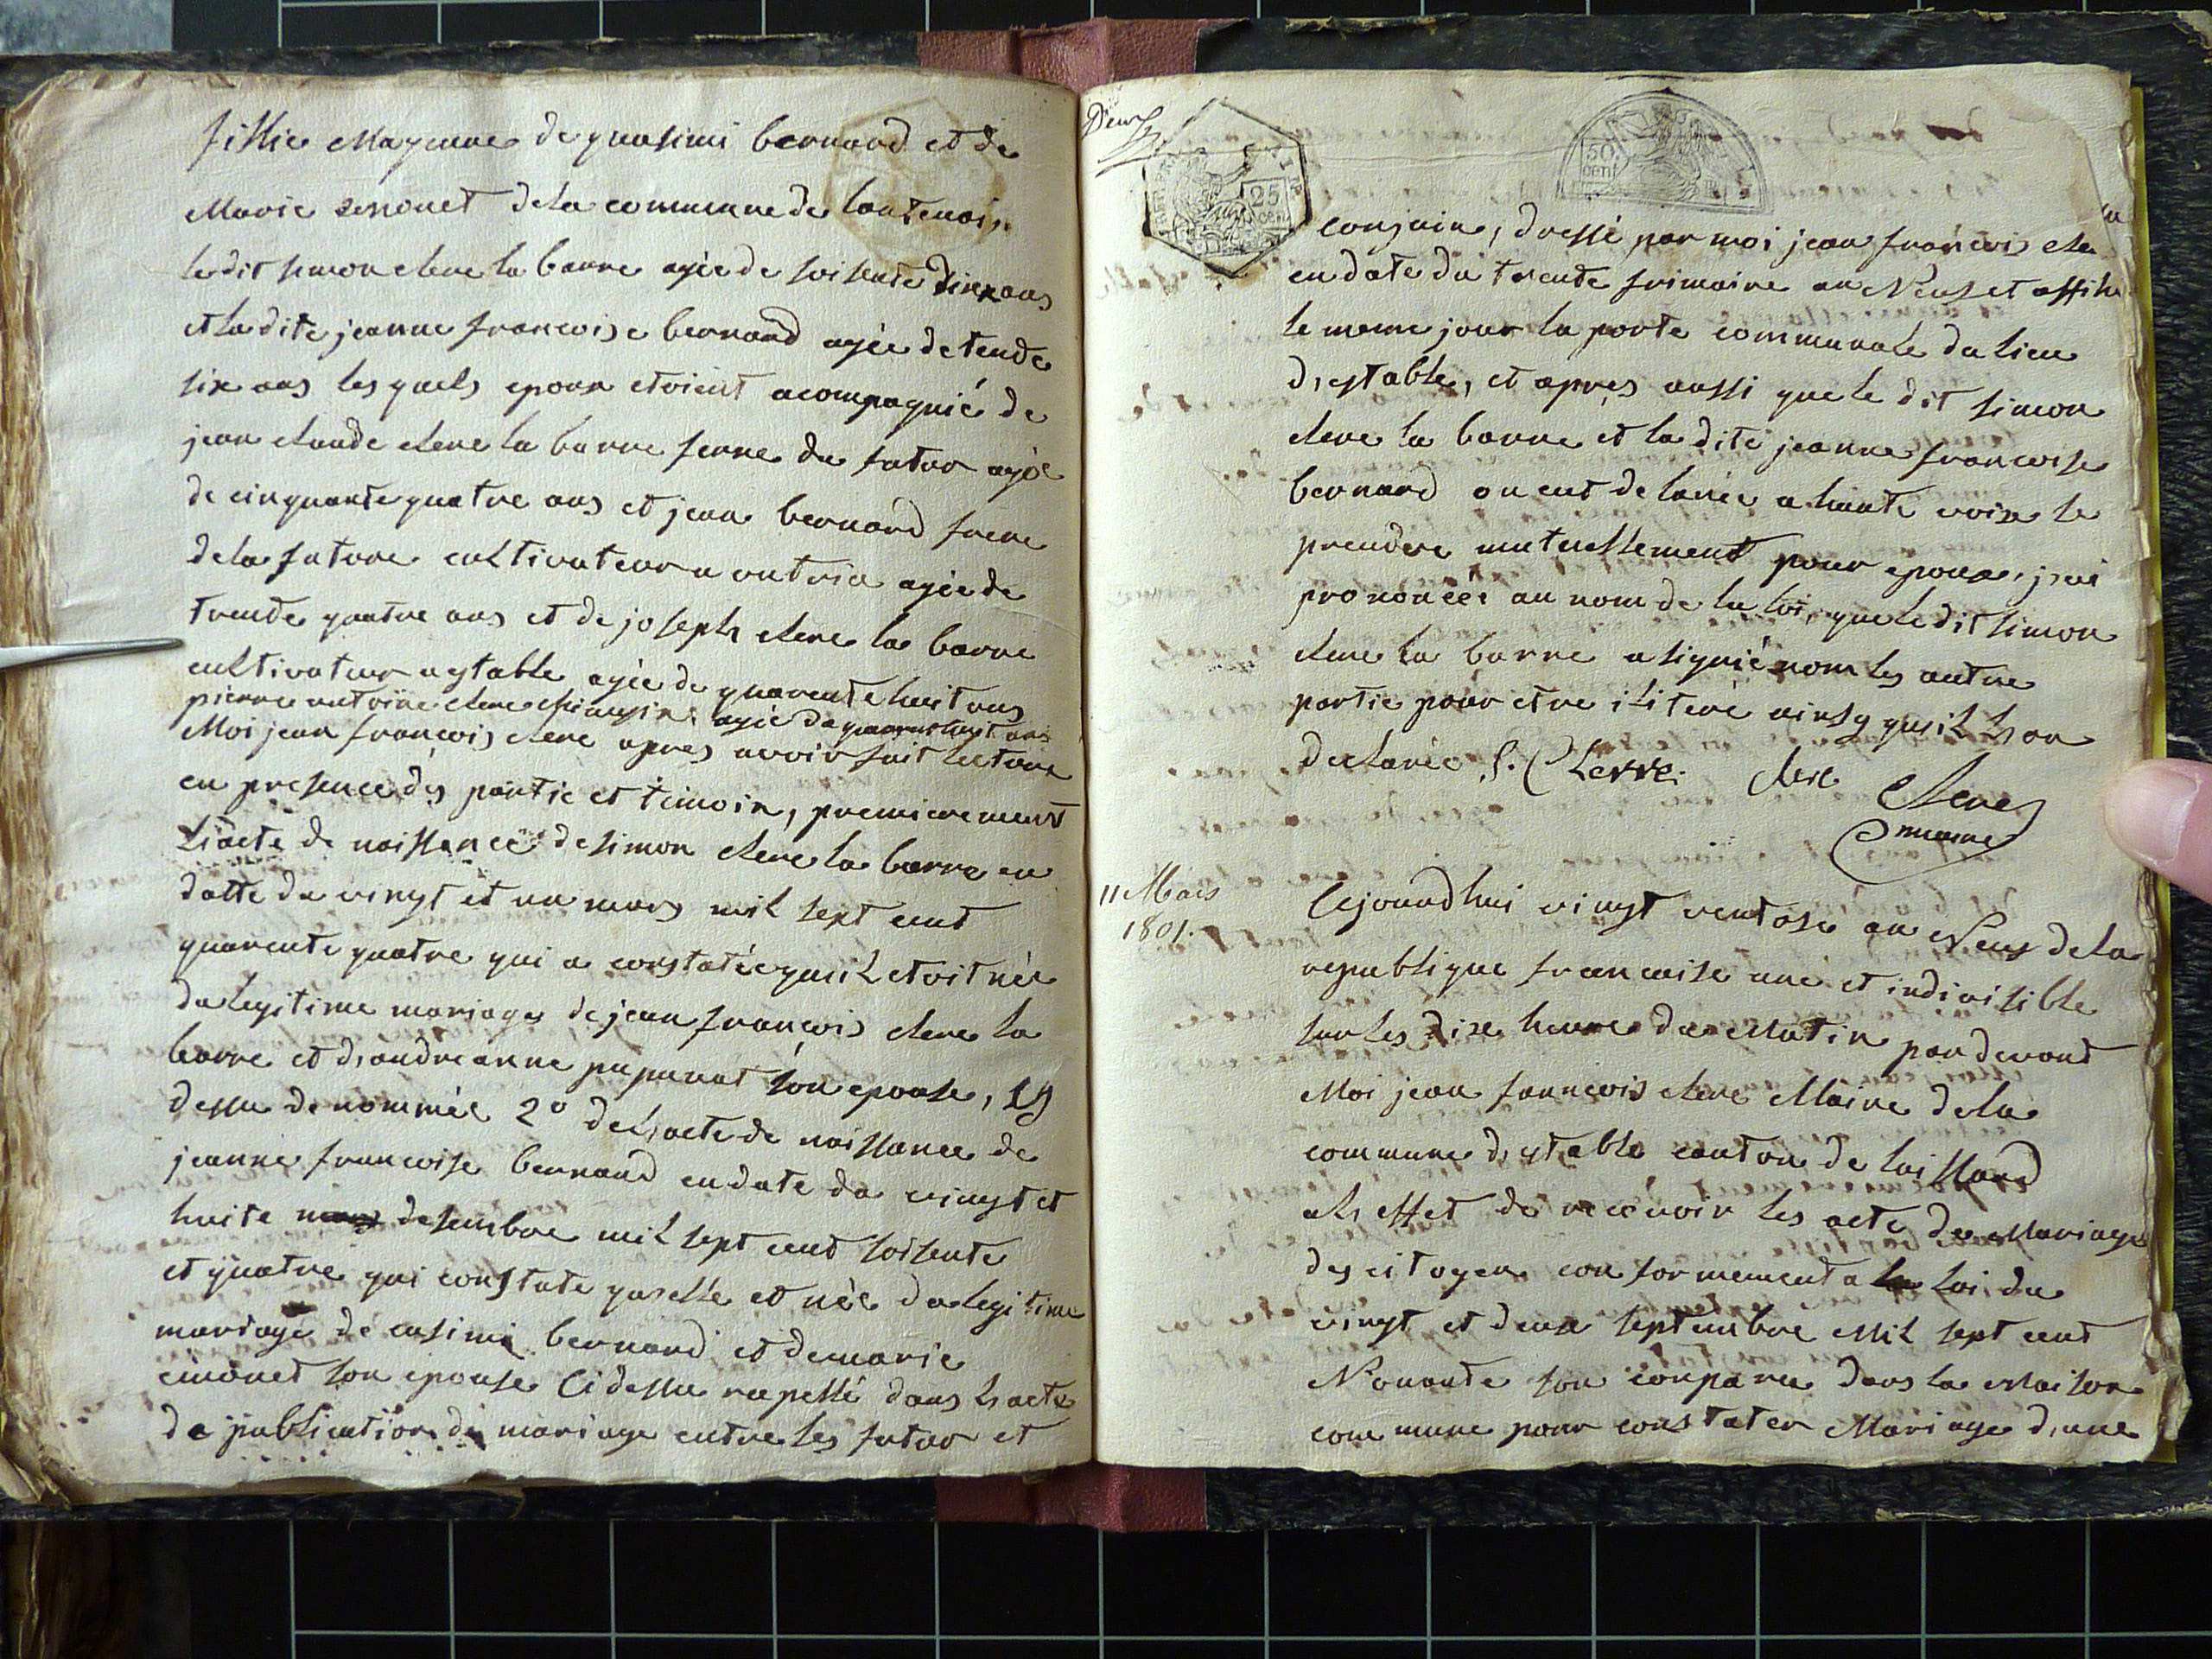 fillie Mayeure de quasimi bernard et de
Marie senouet dela commune de lontenois
le dit simon clerc la barre agée de soisente dixx ans
et la dite jeanne francoise bernard agée de tende
six ans les quels epoux etoient acompagnié de
jean claude clerc la barre ferre du futur agée
de cinquante quatre ans et jean bernard frere
dela future cultivateur a ontria agée de
trende quatre ans et de joseph clerc la barre
cultivateur a etable agée de quarente huit ans
pierre antoine clerc agée de quarente huit ans
Moi jean françois clerc apres avoir fait lecture
en presence des partie et temoin, premierement
L'acte de naissance de simon clerc la barre en
datte du vingt et un mars mil sept cent
quarente quatre qui a constatée qu'il etoit née
du legitime mariage de jean françois clerc la
barre et d'andreanne papunat son epouse, cy
dessu denommée 2° de l'acte de naissance de
jeanne francoise bernard en date du vingt et
huite mars desembre mil sept cent soisente
et quatre qui constate qu'elle et née du legitime
mariage de casimi bernard et de marie
cinonet son epouse Ci dessu rapellé dans l'acte
de publication du mariage entre les futur et
Deux
25 cen
50 cent
conjoin, dressé par moi jean françois cle
en date du trente frimaire an Neuf et affihe
le meme jour la porte communale du lieu
d'estable, et apres aussi que le dit simon
clerc la barre et la dite jeanne francoise
bernard on eut declarée a haute voix le
prendere mutuellement pour epoux, j'ai
prononcée au nom de la loi, que le dit simon
clerc la barre a signié nom les autre
partie pour etre ilitéré ainsy qu'il l'on
declarée S. Clerre. clerc Clerc
maire
11 Mars
1801.
Cejourdhui vingt ventose an Neuf dela
republique francaise une et indivisible
sur les dixe heure du Matin par devant
Moi jean francois clerc Maire dela
commune d'etable canton de la
a l'effet de recevoir les acte de Mariage
des citoyen conformement a la loi du
vingt et deux septembre Mil sept cent
Nonante son comparu dans la Maison
commune pour constater Mariage d'une